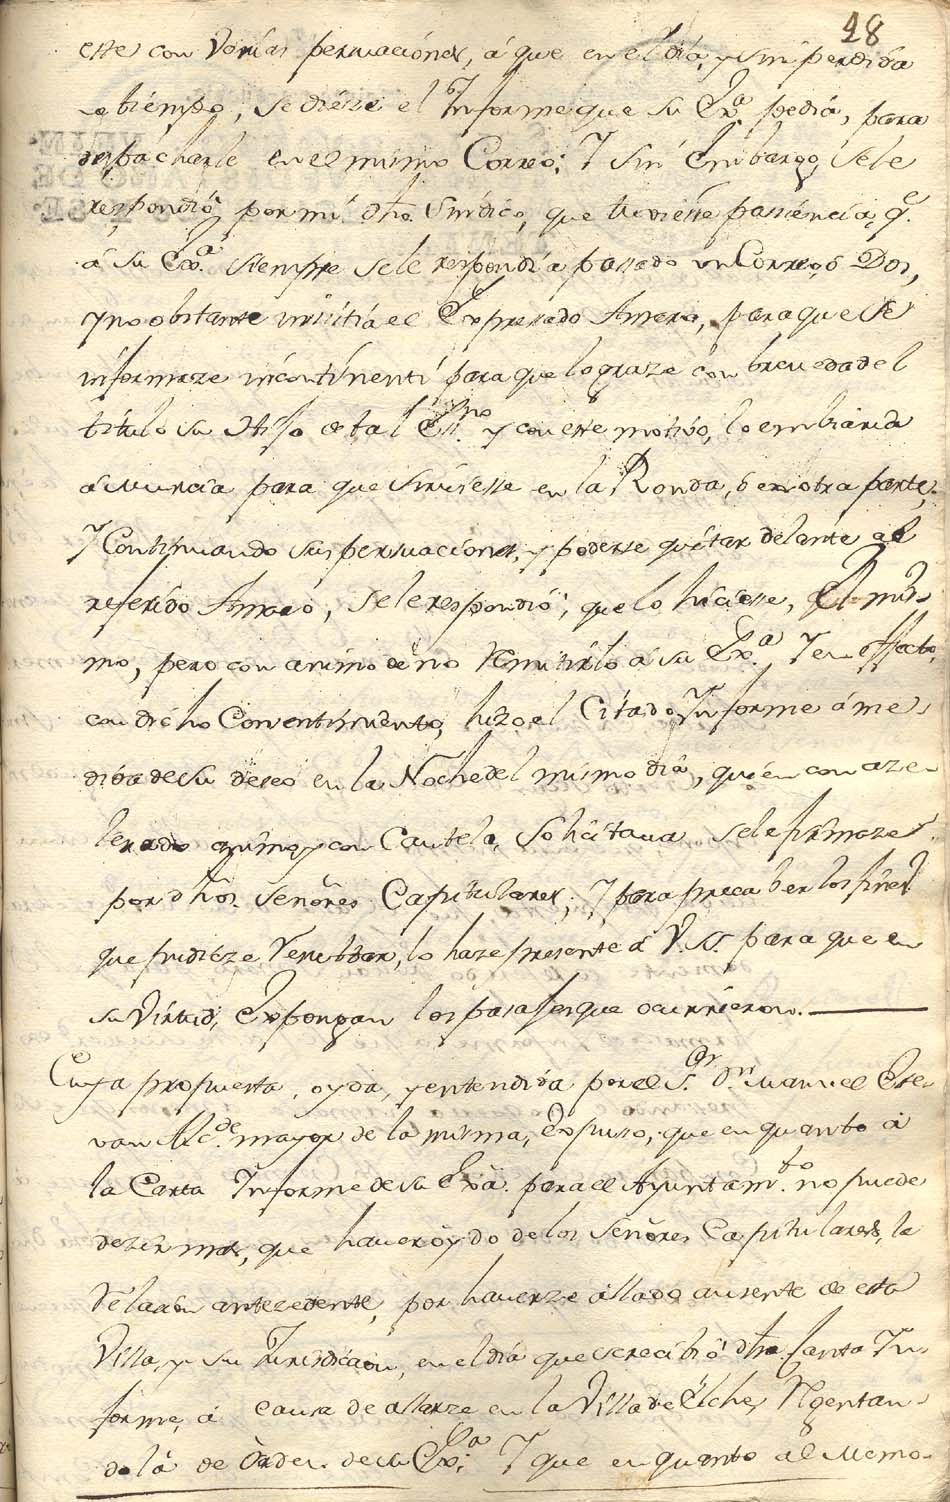 28
este con Varias persuaciónes, á que en el dia, y sin perdida
de tiempo, se diese el Ynforme que su Exª. pediá, para
despacharle en el mismo Correo; Y sin Embargo, se le
respondió, por mi dho. Sindico, que tuviesse passiencia, q.ᵉ
á su Exª. siempre se le respondia passado un Correo, ó Dos,
y no obstante insistia el Expressado Amaro, para que se
informaze incontinenti para que lograze con brevedad el
titulo su Hijo de tal Essno. y con este motivo, lo embiaria
á Murcia para que sirviesse en la Ronda, ó en otra parte;
Y Continuando sus persuaciones, y poderse quitar delante al
referido Amaro, se le respondió, que lo hiciesse, El mis-
mo, pero con animo de no Remitirlo á su Exª. Y en effecto,
con dicho Consentimiento, hizo el Citado Ynforme á me-
dida de su deseo en la Noche del mismo dia, quien con aze-
lerado animo, y con Cautela, Solicitaua se le firmaze
por dhos. Señores Capitulares; Y para precaber los fines
que pudieze Resultar, lo haze presente á V.SS. para que en
su Virtud, Expongan los pasajes que ocurrieron.
Cuya propuesta, oyda, y entendida por el S.ᵒʳ D.ⁿ Manuel Este-
van Alc.ᵈᵉ mayor de la misma, Expuso, que en quanto á
la Carta Ynforme de su Exª. para el Ayuntam.ᵗᵒ no puede
dezir mas, que haver oydo de los Señores Capitulares, la
Relazion antezedente, por haverze allado ausente de esta
Villa, y su Jurisdicion, en el dia que se recibió dha. Carta Yn-
forme, á causa de allarze en la Villa de Elche, Rgentan-
dola de Orden de su Exª; Y que en quanto al Memo-